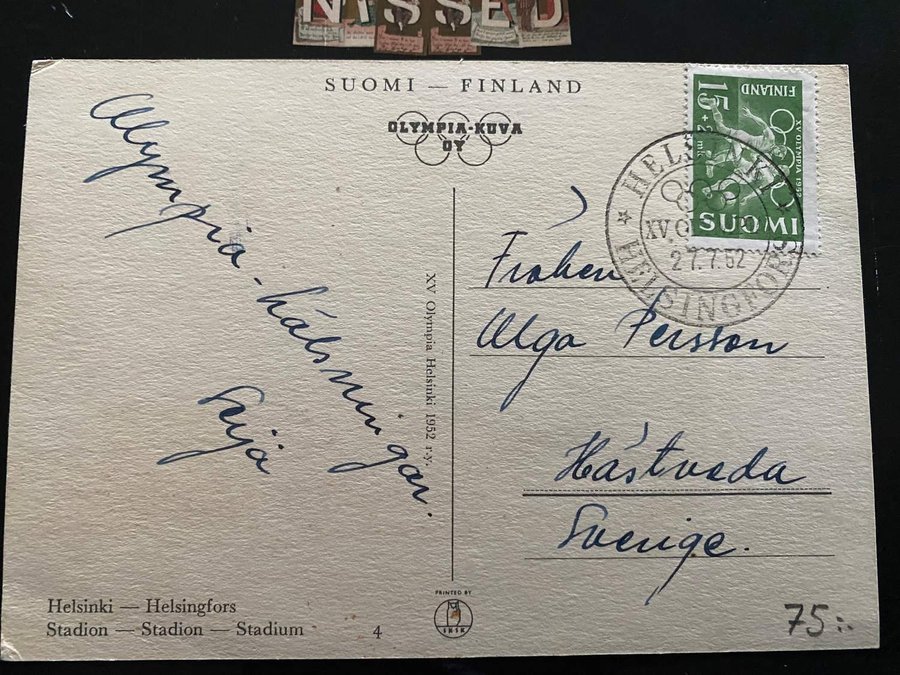 NISSED
SUOMI — FINLAND
OLYMPIA-KUVA
OY
15 + 2 mk
FINLAND
XV OLYMPIA 1952
SUOMI
HELSINKI
XV
27.7.52
HELSINGFORS
Olympia-hälsningar.
Seija
XV Olympia Helsinki 1952 r.y.
Fröken
Olga Persson
Hästveda
Sverige.
Helsinki — Helsingfors
Stadion — Stadion — Stadium
4
PRINTED BY
75:-